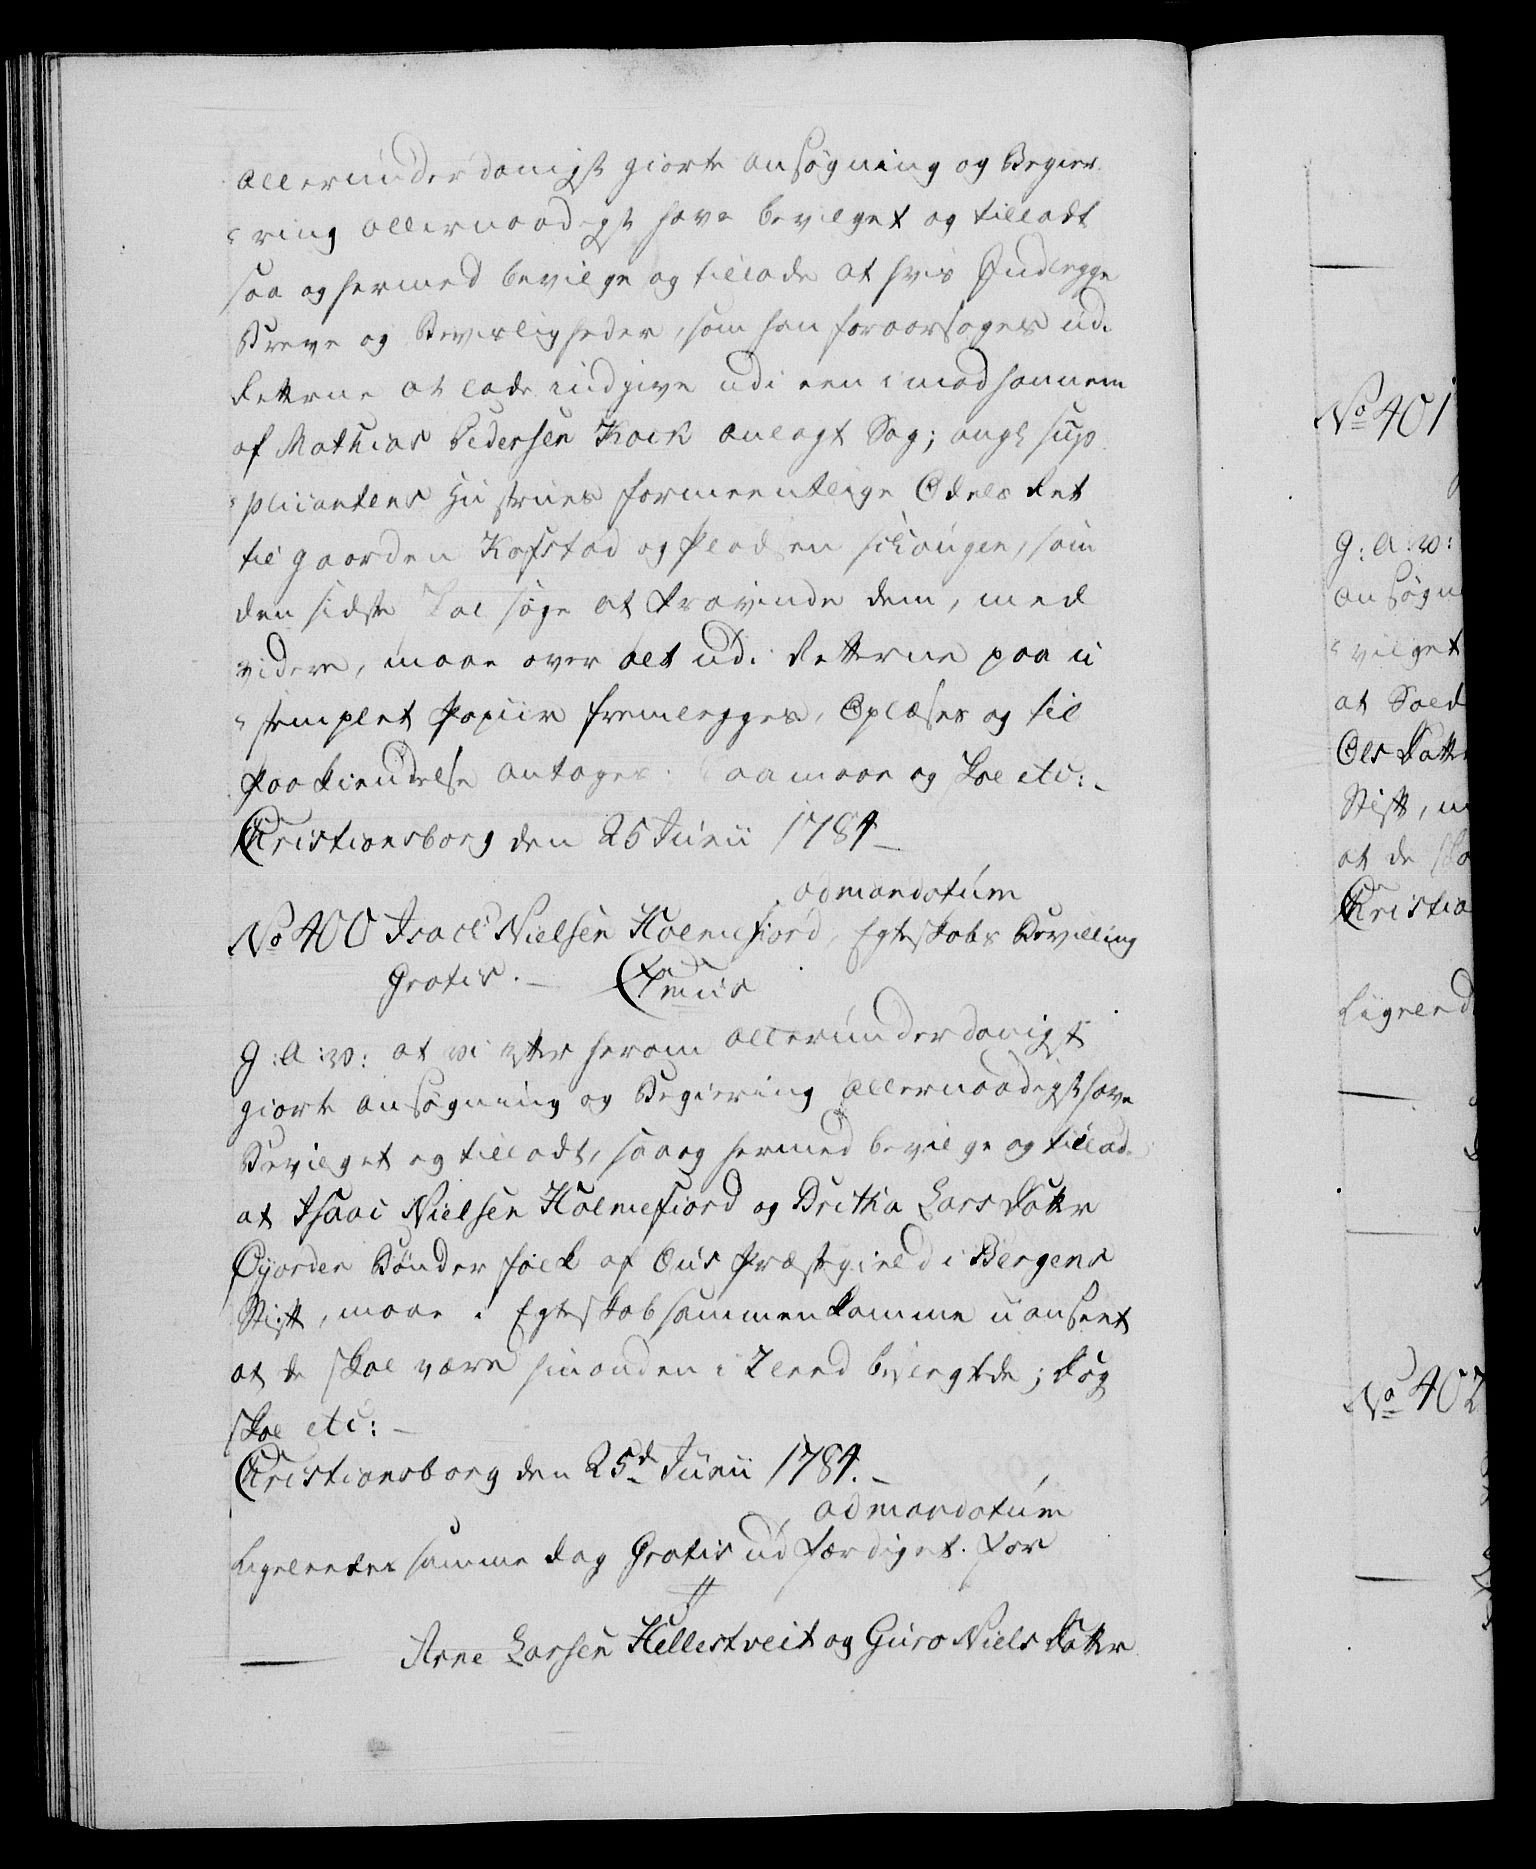 allerunderdanigst giorte ansøgning og Begier
ring allernaadigst have bevilget og tilladt
saa og hermed bevilge og tillade at hvis Indlegge
Breve og Beviisligheder, som han foraarsages udi
Retterne at lade indgive udi een imod hannem
af Mathias Pedersen Kock anlagt Sag; angl: sup
plicantens Hustrues formeentlige Odels Ret
til gaarden Kafstad og Pladsen, som
den sidste skal søge at fravinde dem, med
videre, maae over alt udi Retterne paa u
stemplet Papiir fremlegges, Oplæses og til
Paakiendelse antages. saa maae og skal etc:
Christiansborg den 25 Junii 1784
ad mandatum
No 400 Isach Nielsen Holmefiord, Egteskabs Bevilling
Gratis.
G: A: V: at vi efter herom allerunderdanigst
giorte ansøgning og Begiering allernaadigst have
Bevilget og tilladt, saa og hermed bevilge og tillade
at Isaac Nielsen Holmefiord og Britha Lars Datter
Gjorden Bønder folck af Ous Præstegield i Bergens
Stift, maae i Egteskab sammenkomme uanseet
at de skal være hinanden i 2 leed besvogrede; dog
skal etc:
Christiansborg den 25d Junii 1784.
ad mandatum
Ligeledes samme dag Gratis udfærdiget. for
Arne Larsen Hellestveit og Guro Niels Datter
No 401
G: A: V:
ansøgn
vilget
at Sæd
Ols Datter
Stift, m
at de ska
Christia
Ligeled
No 402